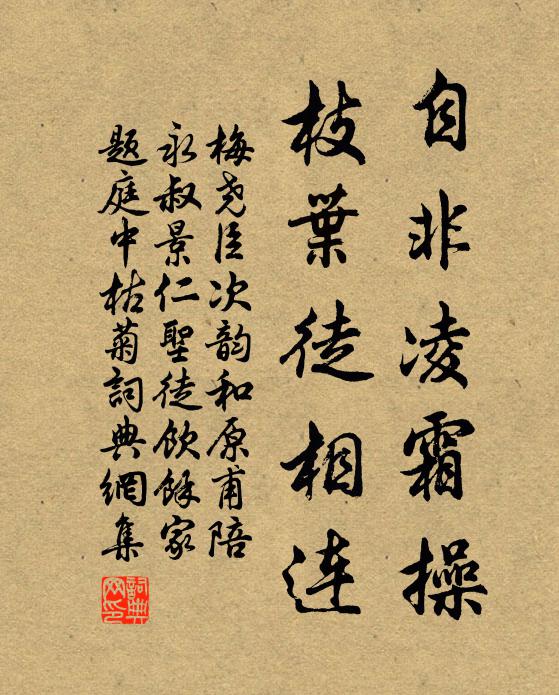 自非凌霜操
枝葉徒相連
梅尧臣次韵和原甫陪
永叔景仁聖徒飲餘家
题庭中枯菊詞典網集
詞典網印